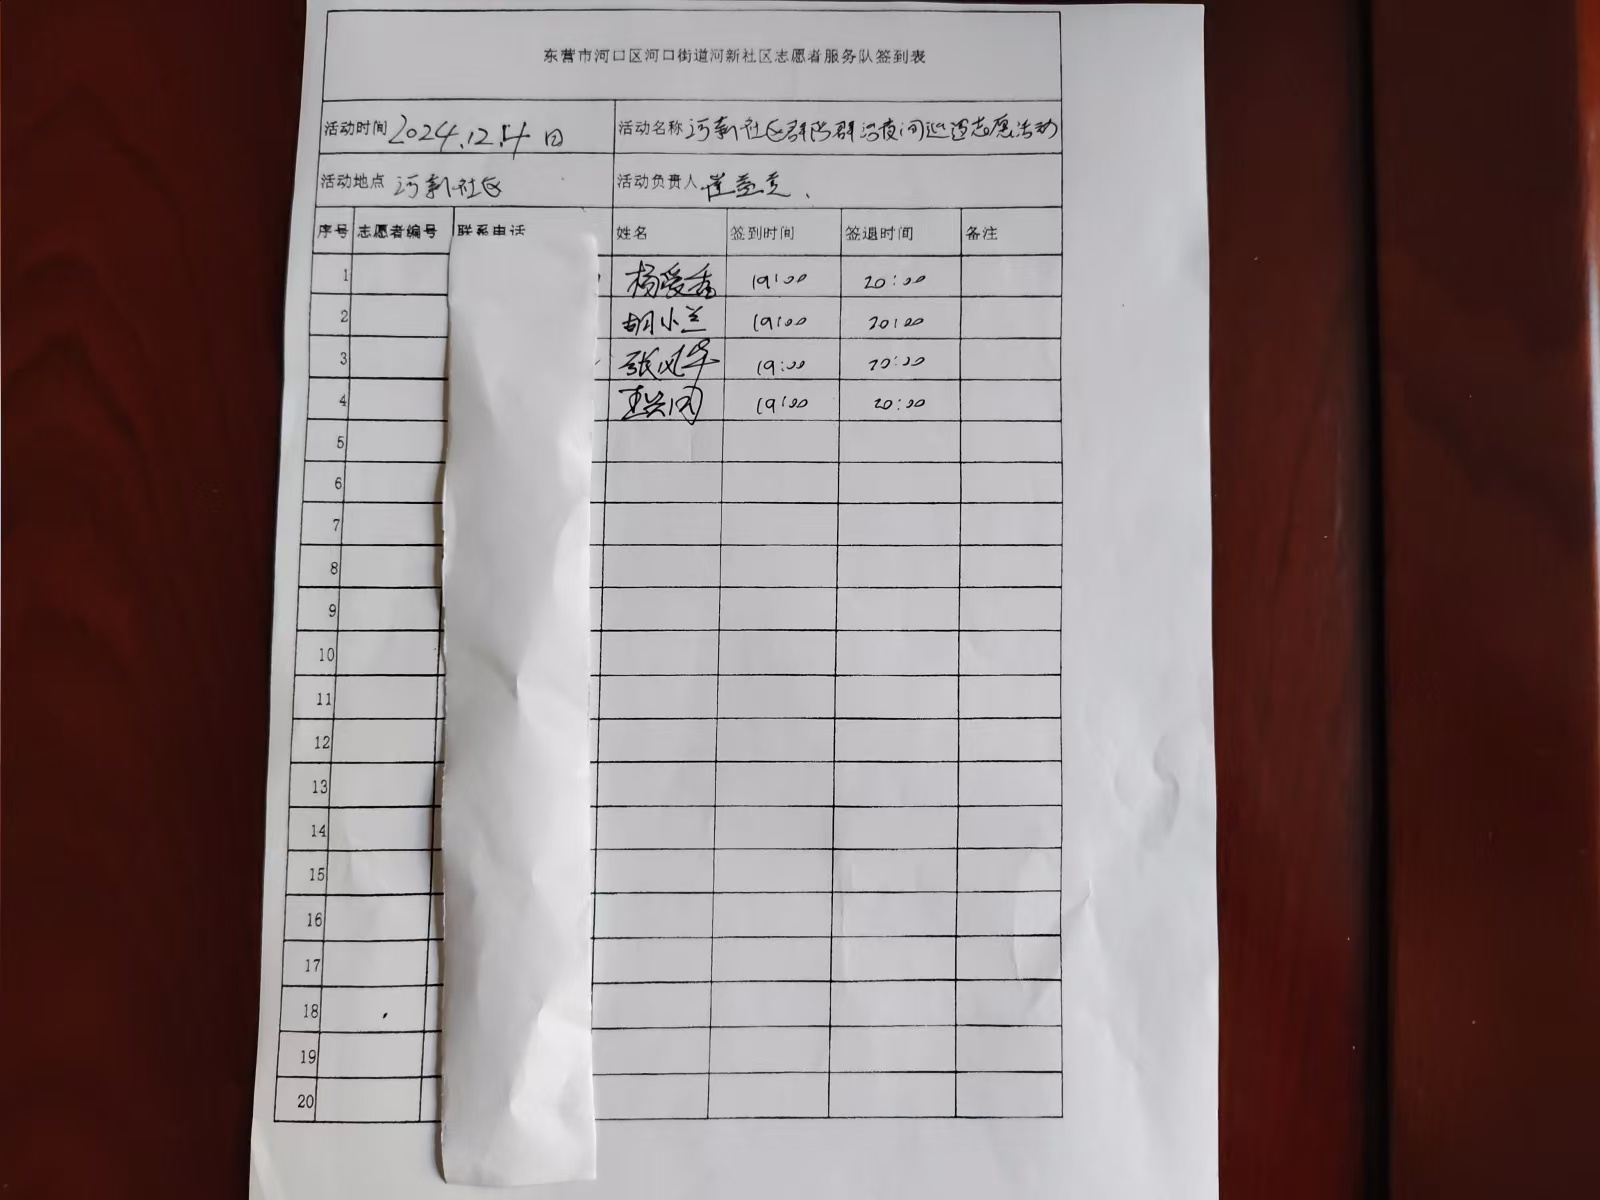 东营市河口区河口街道河新社区志愿者服务队签到表
活动时间 2024.12.4日 活动名称 河新社区群防群治夜间巡逻志愿活动
活动地点 河新社区 活动负责人
序号 志愿者编号 联系电话 姓名 签到时间 签退时间 备注
1 杨爱香 19:00 20:00
2 胡小兰 19:00 20:00
3 张风华 19:00 20:00
4 19:00 20:00
5
6
7
8
9
10
11
12
13
14
15
16
17
18
19
20